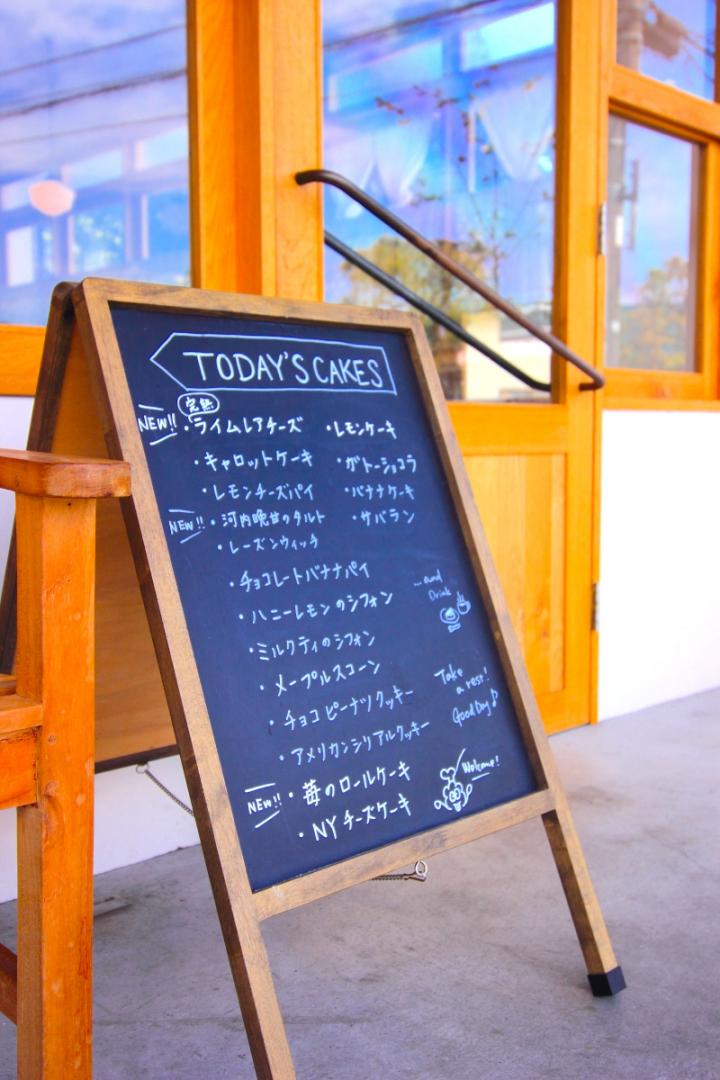 TODAY'S CAKES
完熟
NEW!! ・ライムレアチーズ
・キャロットケーキ
・レモンチーズパイ
NEW!! ・河内晩甘のタルト
・レーズンウィッチ
・チョコレートバナナパイ
・ハニーレモンのシフォン
・ミルクティのシフォン
・メープルスコーン
・チョコピーナツクッキー
・アメリカンシリアルクッキー
NEW!! ・苺のロールケーキ
・NYチーズケーキ
・レモンケーキ
・ガトーショコラ
・バナナケーキ
・サバラン
...and
Drink
Take
a rest!
Good Day♪
Welcome!